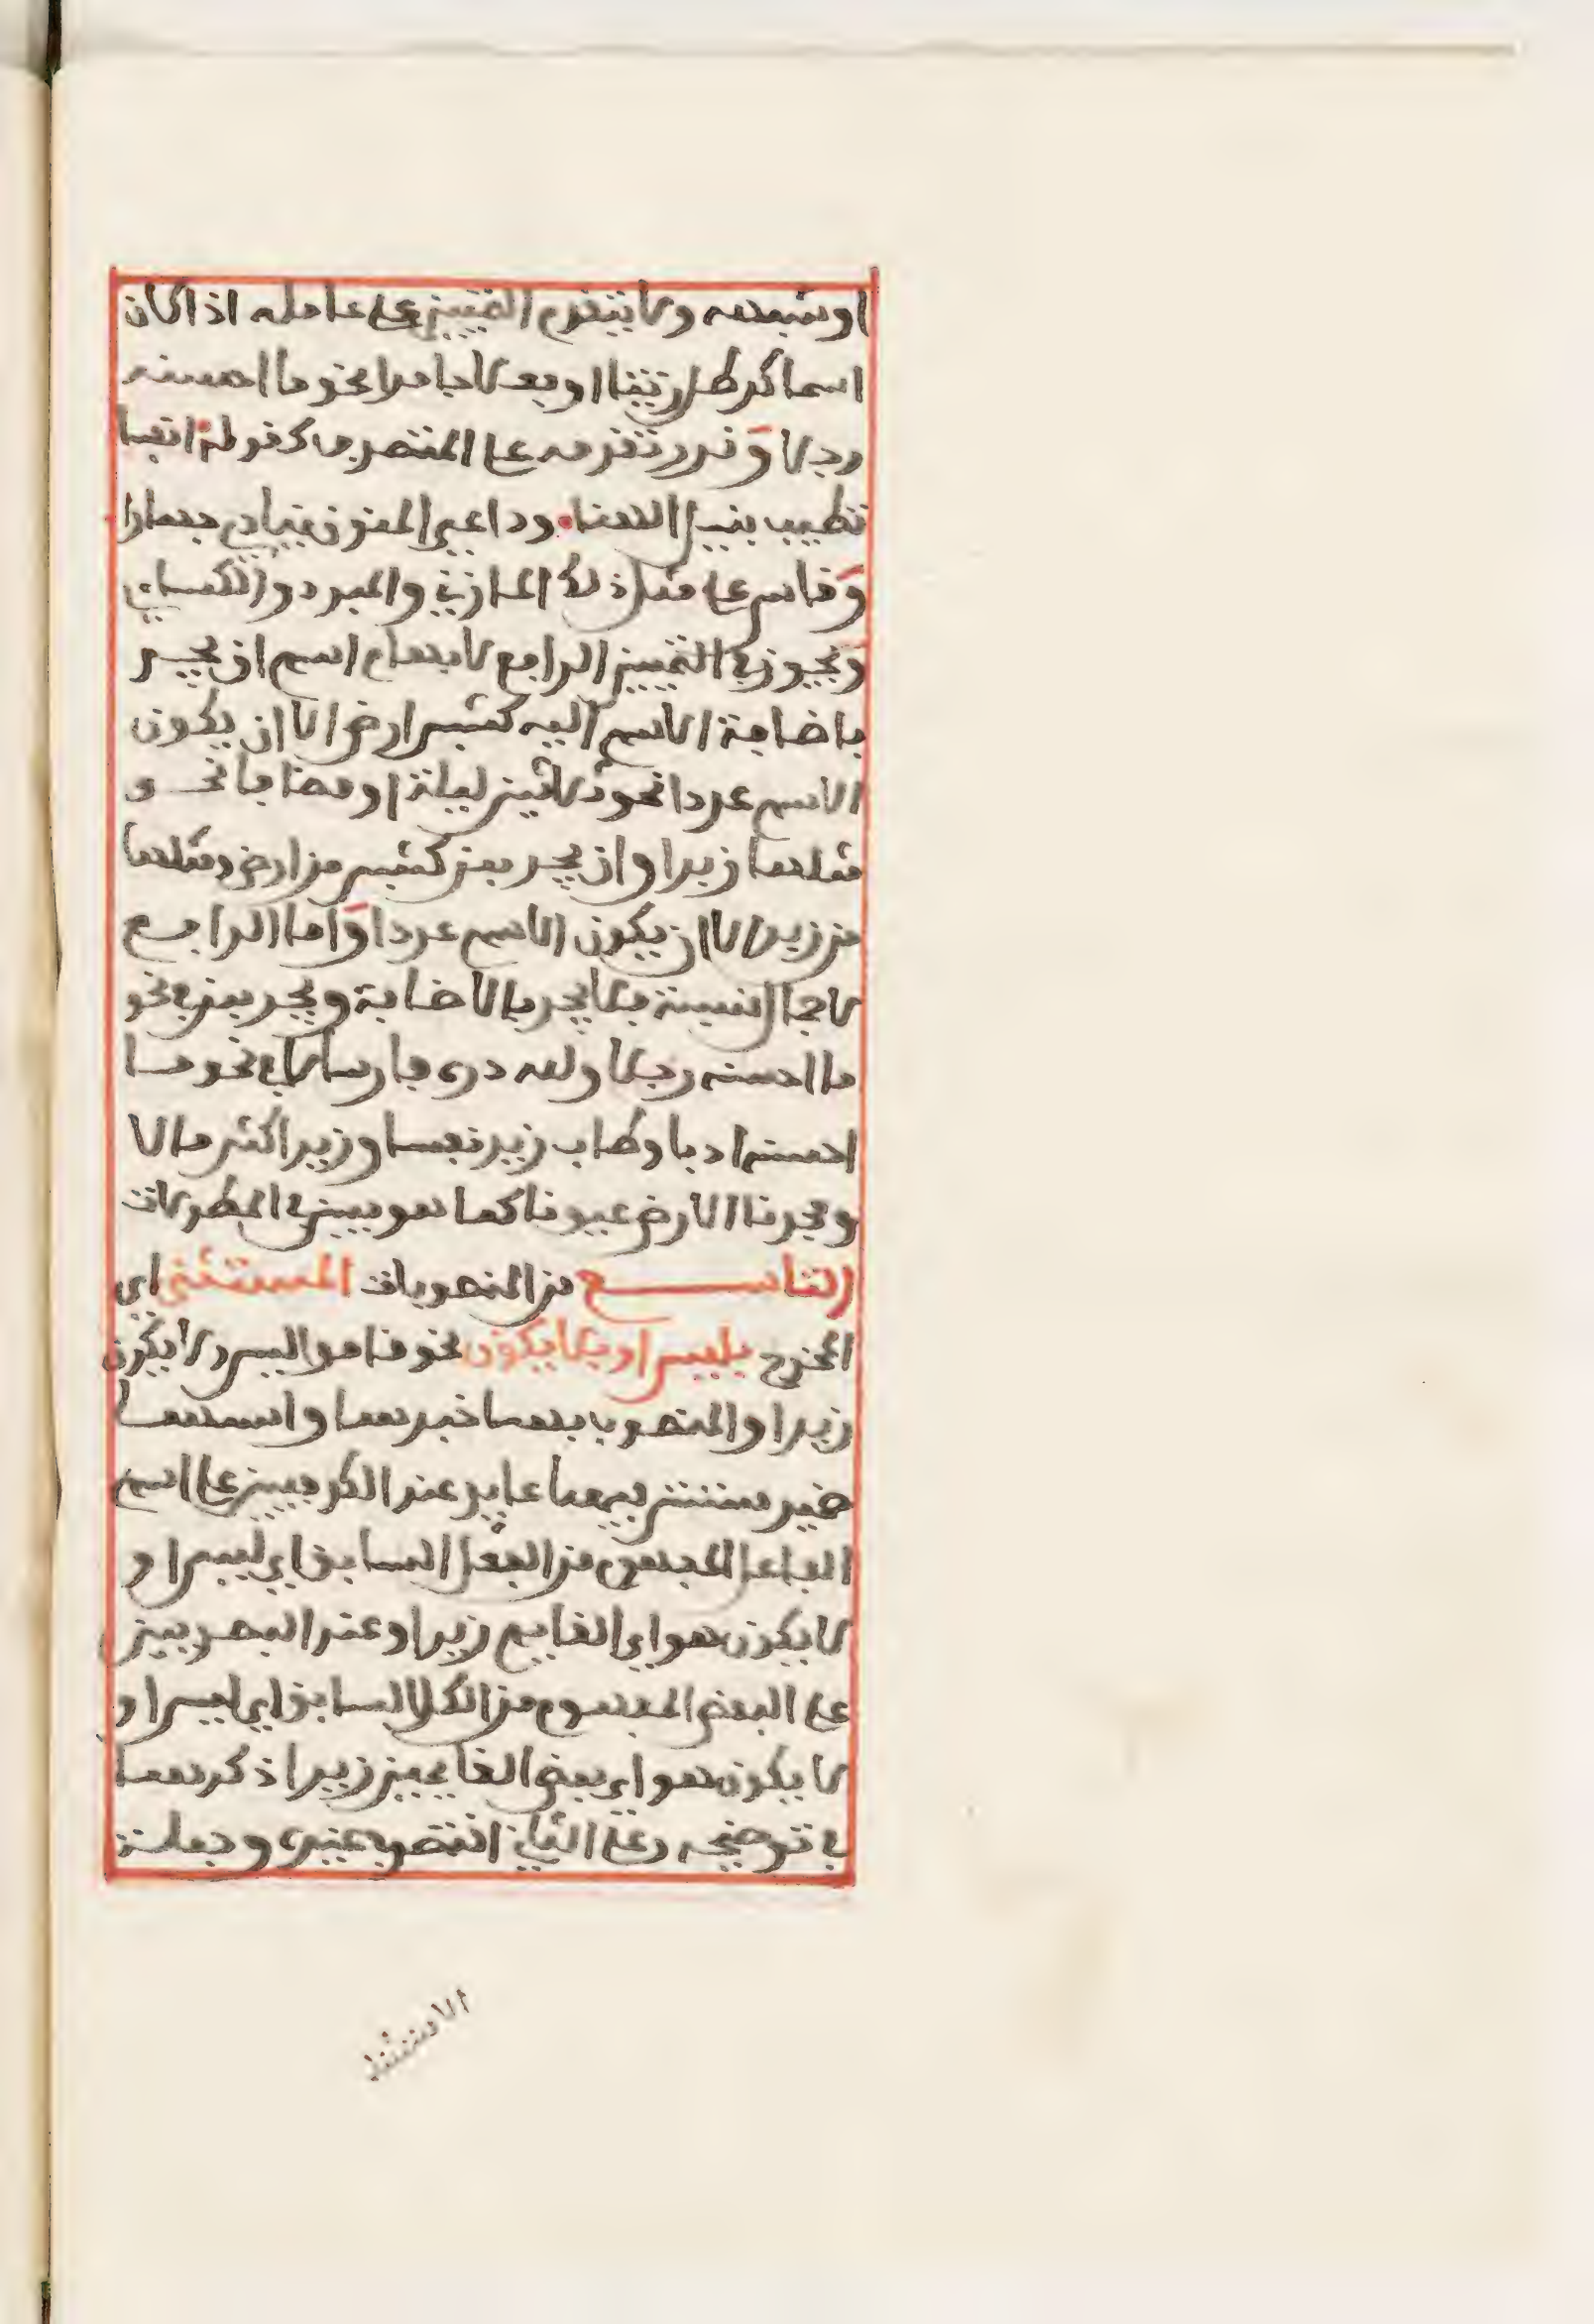 او شبهه ولا يتقدم التمييز على عامله اذا كان
اسما كرطل زيتا او فعلا جامدا نحو ما احسنه
رجلا وندر تقدمه على المتصرف كقوله انفسا
تطيب بنيل المنا وداعي المنون ينادي جهارا
وقاس على مثل ذلك المازني والمبرد والكسائي
ويجوز في التمييز الرافع لابهام اسم ان يجر
باضافة الاسم اليه كشبر ارض الا ان يكون
الاسم عددا نحو ثلاثين ليلة او مضافا نحو
مثلها زبدا وان يجر بمن كشبر من ارض ومثلها
من زبد الا ان يكون الاسم عددا واما الرافع
لاجمال نسبة فلا يجر بالاضافة ويجر بمن في نحو
ما احسنه رجلا ولله دره فارسا لا في نحو ما
احسنه ادبا وطاب زيد نفسا وزيد اكثر مالا
وفجرنا الارض عيونا كما هو مبين في المطولات
التاسع من المنصوبات المستثنى اي
المخرج بليس او بلا يكون نحو قاموا ليس ولا يكون
زيدا والمنصوب بهما خبرهما واسمهما
ضمير مستتر فيهما عايد عند الكوفيين على اسم
الفاعل المفهوم من الفعل السابق اي ليس او
لا يكون هو اي القايم زيدا وعند البصريين
على البعض المفهوم من الكل السابق اي ليس او
لا يكون هو اي بعض القايمين زيدا ذكرهما
في توضيحه وعلى الثاني اقتصر غيره وجملة
الاستثنا